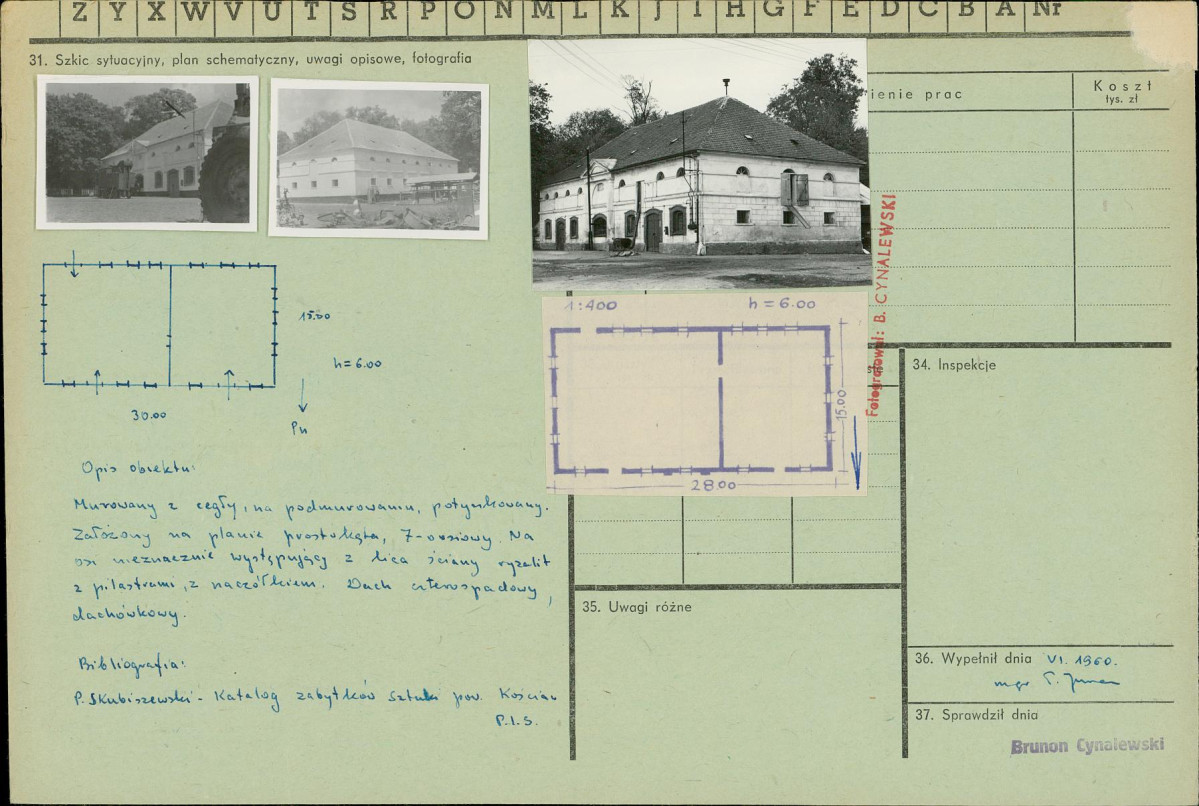 Z Y X W V U T S R P O N M L K J I H G F E D C B A Nr
31. Szkic sytuacyjny, plan schematyczny, uwagi opisowe, fotografia
ienie prac
Koszt
tys. zł
Fotografował: B. CYNALEWSKI
15.00
h = 6.00
30.00
Pn
1:400
h = 6.00
15.00
28.00
Opis obiektu:
Murowany z cegły, na podmurowaniu, potynkowany.
Założony na planie prostokąta, 7-osiowy. Na
osi nieznacznie występujący z lica ściany ryzalit
z pilastrami, z naczółkiem. Dach czterospadowy,
dachówkowy.
Bibliografia:
P. Skubiszewski - Katalog zabytków sztuki pow. Kościan
P.I.S.
34. Inspekcje
35. Uwagi różne
36. Wypełnił dnia VI. 1960.
mgr
37. Sprawdził dnia
Brunon Cynalewski